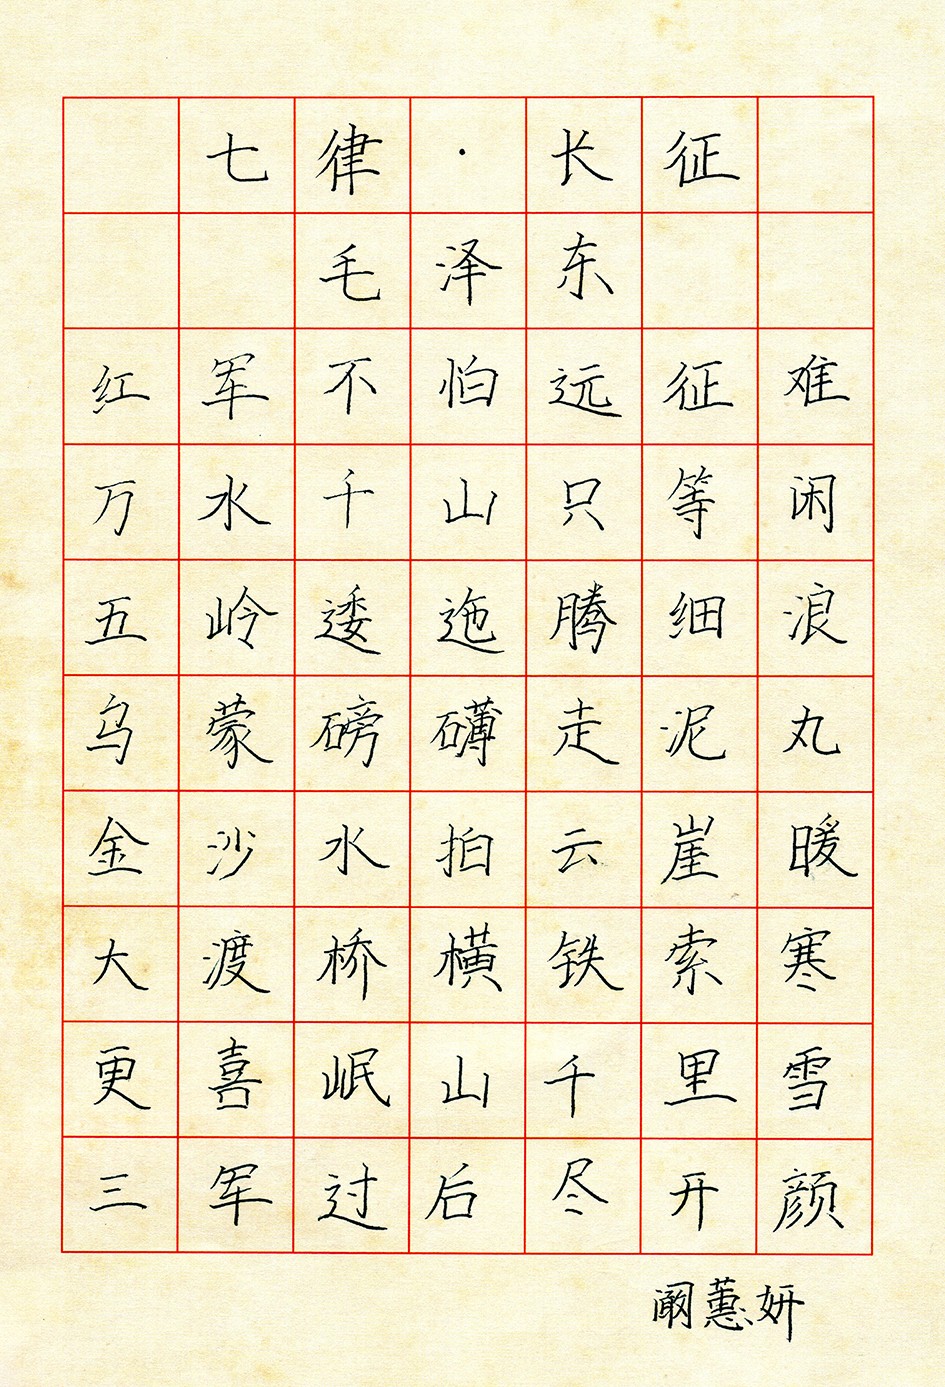 七律·长征
毛泽东
红军不怕远征难
万水千山只等闲
五岭逶迤腾细浪
乌蒙磅礴走泥丸
金沙水拍云崖暖
大渡桥横铁索寒
更喜岷山千里雪
三军过后尽开颜
阚蕙妍